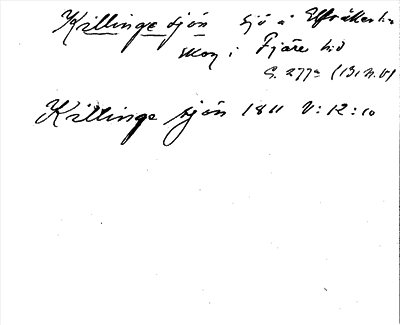 Killinge sjön sjö å Elfsåkers
skog i Fjäre hd
G. 2773 (131 N.V)
Killinge sjön 1811 V:12:10